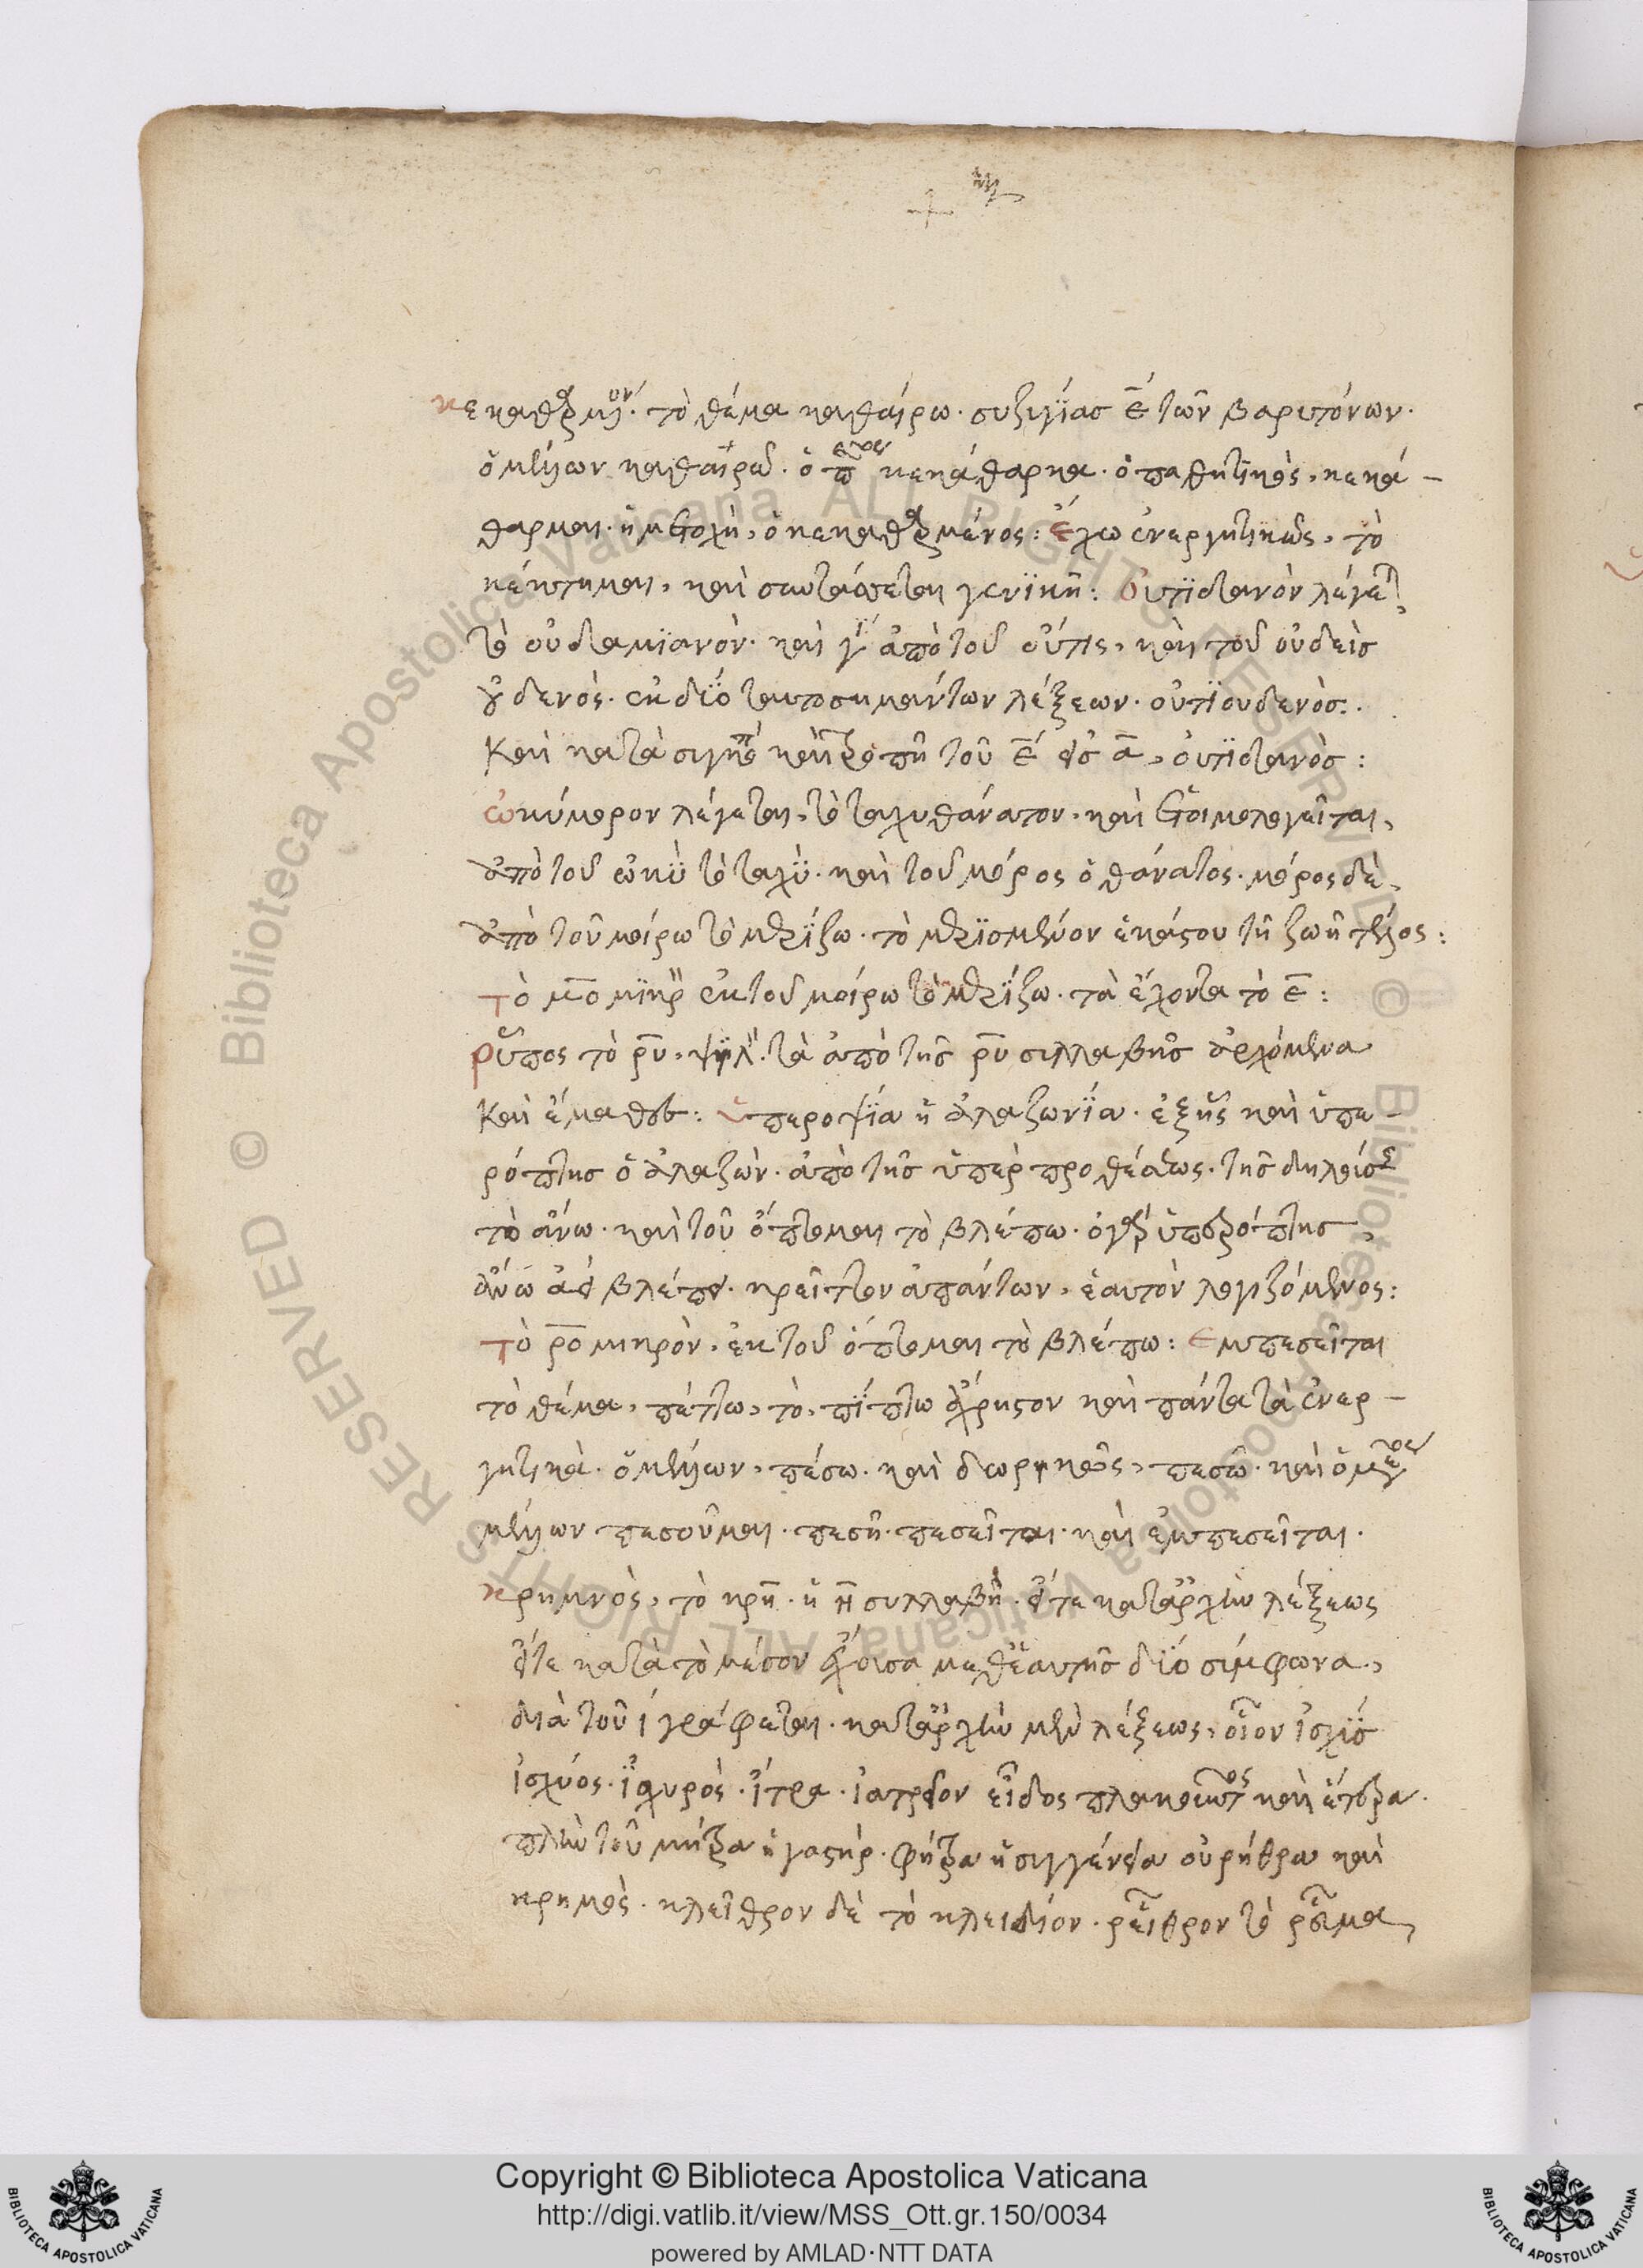 κεκαθαρμένον· τὸ θέμα καθαίρω· συζυγίασ ε̄ τῶν βαρυτόνων·
ὁ μέλλων καθαρῶ· ὁ π κεκάθαρκα· ὁ παθητικὸς, κεκά-
θαρμαι· ἡ μετοχὴ, ὁ κεκαθαρμένος: ἔχω ἐνεργητικῶς, τὸ
κέκτημαι, καὶ συντάσσεται γενϊκῆ: Οὐτϊδανὸν λέγεται,
τὸ οὐδαμϊανὸν· καὶ γί ἀπὸ τοῦ οὔτις, καὶ τοῦ οὐδεὶσ
οὐδενὸς· ἐκ δϋό ταυτοσημάντων λέξεων· οὐτϊουδενὸσ:.
Καὶ κατὰ συγκοπὴ καὶ τροπῆ τοῦ ε̄ εἰσ ᾱ, οὐτϊδανὸσ:
ὠκύμορον λέγεται, τὸ ταχυθάνατον· καὶ ἐτοιμολογεῖται,
ἀπὸ τοῦ ὠκϋ τὸ ταχϋ· καὶ τοῦ μόρος ὁ θάνατος· μόρος δὲ,
ἀπὸ τοῦ μείρω τὸ μερίζω· τὸ μερϊσμένον ἑκάστου τῆ ζωῆ τέλος:
τὸ μο μϊκρὸν ἐκ τοῦ μείρω τὸ μερίζω· τὰ ἔχοντα τὸ ε̄:
ρύπος τὸ ρυ, ψϊλὸν· τὰ ἀπὸ τῆσ ρυ σιλλαβῆσ ἀρχόμενα
Καὶ ἔμαθες: ὑπεροψϊα ἡ ἀλαζωνϊα· ἐξ ἧς καὶ ὑπε-
ρόπτησ ὁ ἀλαζὼν· ἀπὸ τῆσ ὑπὲρ προθέσεως· τῆσ δηλούσης
τὸ ἄνω· καὶ τοῦ ὄπτομαι τὸ βλέπω· ὁ γὰρ ὑπερόπτησ,
ἄνω ἀεὶ βλέπει· κρεῖττον ἁπάντων, ἑαυτὸν λογιζόμενος:
τὸ ρο μικρὸν· ἐκ τοῦ ὄπτομαι τὸ βλέπω: Εμπεσεῖται
τὸ θέμα, πέττω, τὸ, πϊπτω ἄχρηστον καὶ πάντα τὰ ἐνερ-
γητικὰ· ὁ μέλλων, πέσω· καὶ δωρικῶς, πεσῶ· καὶ ὁ μέσος
μέλλων πεσοῦμαι· πεσῆ· πεσεῖται· καὶ ἐμπεσεῖται·
κρημνὸς, τὸ κρη· ἡ η συλλαβὴ· εἴτε καταρχὴν λέξεως
εἴτε κατὰ τὸ μέσον ἔχουσα μεθἑαυτῆσ δϋό σύμφωνα,
διὰ τοῦ ι γράφεται· καταρχὴν μὲν λέξεως, οἷον ἰσχϋσ
ἰσχύος· ἰσχυρὸς· ἴτρα· ἰατρεῖον εἶδος πλακοῦντος καὶ ἕτερα·
πλὴν τοῦ μήτρα ἡ γαστήρ· φήτρα ἡ συγγένεια οὐρήθρα καὶ
κρημνὸς· κλεῖθρον δὲ τὸ κλειδίον· ρεῖθρον τὸ ρεῦμα,
Copyright © Biblioteca Apostolica Vaticana
http://digi.vatlib.it/view/MSS_Ott.gr.150/0034
powered by AMLAD·NTT DATA